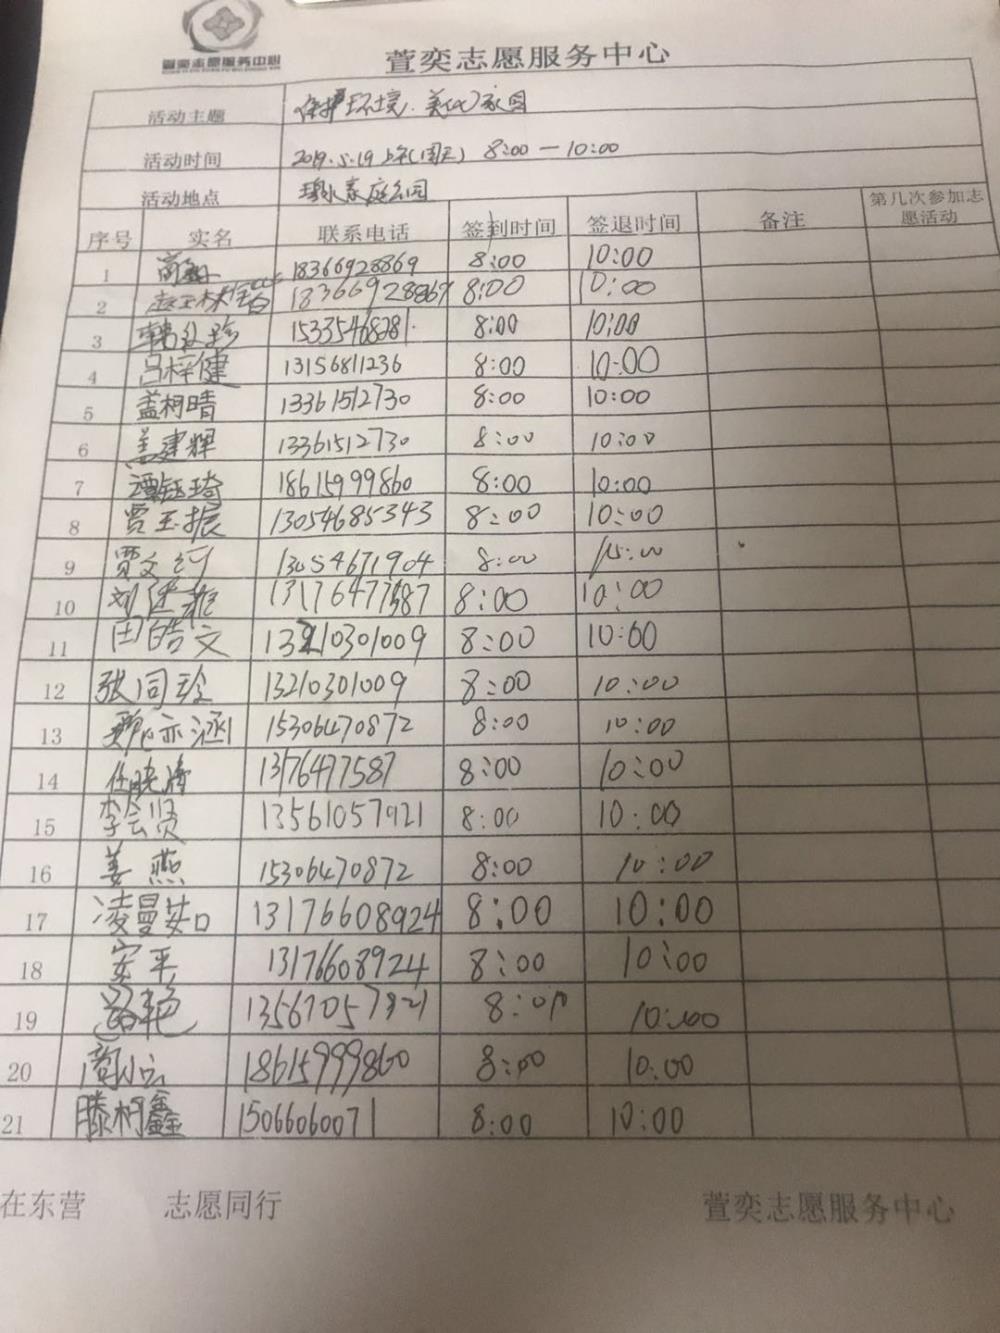 萱奕志愿服务中心
萱奕志愿服务中心
活动主题 保护环境.美化家园
活动时间 2019.5.19上午(周天) 8:00—10:00
活动地点 家庭公园
序号 实名 联系电话 签到时间 签退时间 备注 第几次参加志愿活动
1 18366928869 8:00 10:00
2 18366928869 8:00 10:00
3 韩 15335468281 8:00 10:00
4 吕梓健 13156811236 8:00 10:00
5 盖柯晴 13361512730 8:00 10:00
6 盖建辉 13361512730 8:00 10:00
7 谭钰琦 18615999860 8:00 10:00
8 贾玉振 13054685343 8:00 10:00
9 贾文 13054671904 8:00
10 刘 13176477587 8:00 10:00
11 田皓文 13210301009 8:00 10:00
12 张同珍 13210301009 8:00 10:00
13 亦涵 15306470872 8:00 10:00
14 任晓 13176477587 8:00 10:00
15 李会贤 13561057921 8:00 10:00
16 姜燕 15306470872 8:00 10:00
17 凌曼茹 13176608924 8:00 10:00
18 安平 13176608924 8:00 10:00
19 艳 8:00 10:00
20 18615999860 8:00 10:00
21 滕柯鑫 15066060071 8:00 10:00
在东营 志愿同行 萱奕志愿服务中心